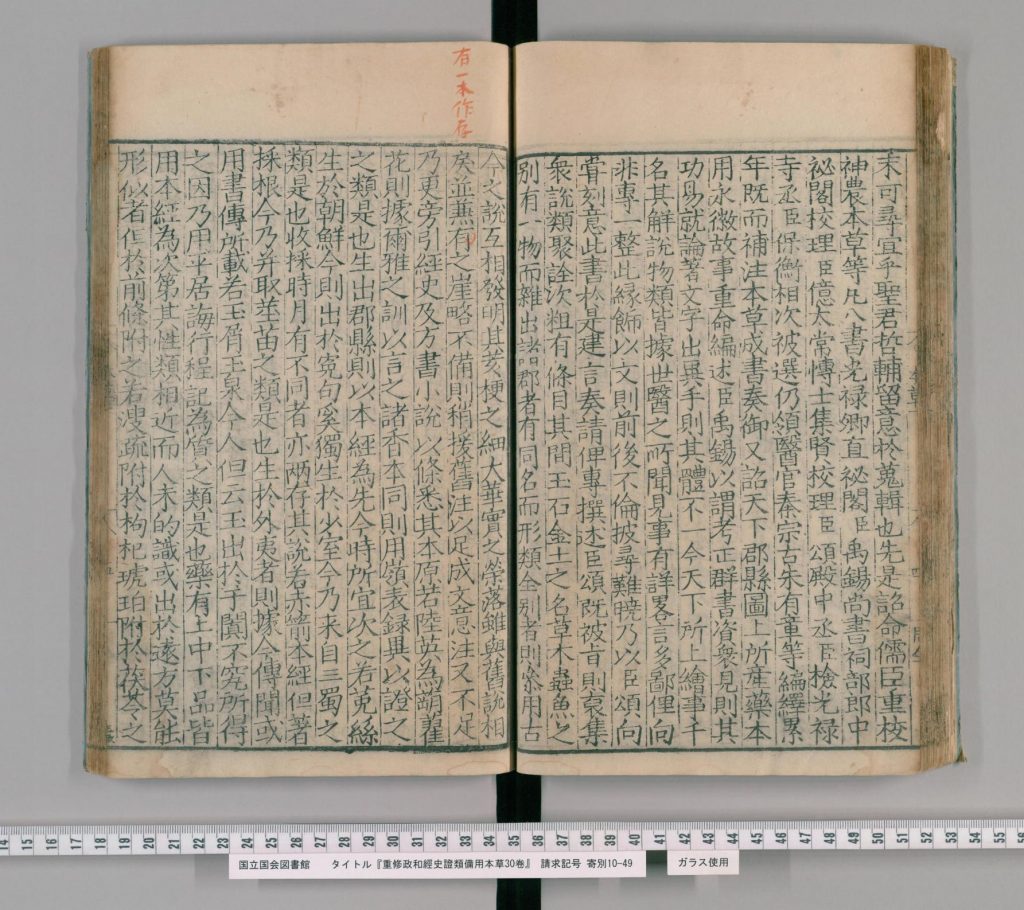 未可尋宜乎聖君哲輔留意於蒐輯也先是詔命儒臣重校
神農本草等凡八書光禄卿直祕閣臣禹錫尚書祠部郎中
祕閣校理臣億太常博士集賢校理臣頌殿中丞臣檢光禄
寺丞臣保衡相次被選仍領醫官秦宗古朱有章等編繹累
年既而補注本草成書奏御又詔天下郡縣圖上所產藥本
用永徽故事重命編述臣禹錫以謂考正群書資衆見則其
功易就論著文字出異手則其體不一今天下所上繪事千
名其解說物類皆據世醫之所聞見事有詳畧言多鄙俚向
非專一整比緣飾以文則前後不倫披尋難曉乃以臣頌向
嘗刻意此書於是建言奏請俾專撰述臣頌既被旨則裒集
衆說類聚詮次粗有條目其間玉石金土之名草木蟲魚之
別有一物而雜出諸郡者有同名而形類全別者則參用古
有一本作存
今之說互相發明其荄梗之細大華實之榮落雖與舊說相
戾並兼有之崖略不備則稍援舊注以足成文意注又不足
乃更旁引經史及方書小說以條悉其本原若陸英為蒴藋
花則據爾雅之訓以言之諸香本同則用嶺表録異以證之
之類是也生出郡縣則以本經為先今時所宜次之若菟絲
生於朝鮮今則出於寃句奚獨生於少室今乃来自三蜀之
類是也收採時月有不同者亦兩存其說若赤箭本經但著
採根今乃并取莖苗之類是也生於外夷者則據今傳聞或
用書傳所載若玉屑玉泉今人但云玉出於于闐不究所得
之因乃用平居誨行程記為質之類是也藥有上中下品皆
用本經為次第其性類相近而人未的識或出於遠方莫能
形似者但於前條附之若溲疏附於枸杞琥珀附於茯苓之
14 15 16 17 18 19 20 21 22 23 24 25 26 27 28 29 30 31 32 33 34 35 36 37 38 39 40 41 42 43 44 45 46 47 48 49 50 51 52 53 54 55 56
国立国会図書館 タイトル『重修政和經史證類備用本草30巻』 請求記号 寄別10-49 ガラス使用